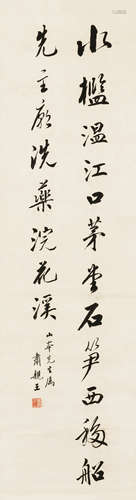 水檻溫江口茅堂石笋西移船
先主廟洗藥浣花溪
山本先生屬
肅親王